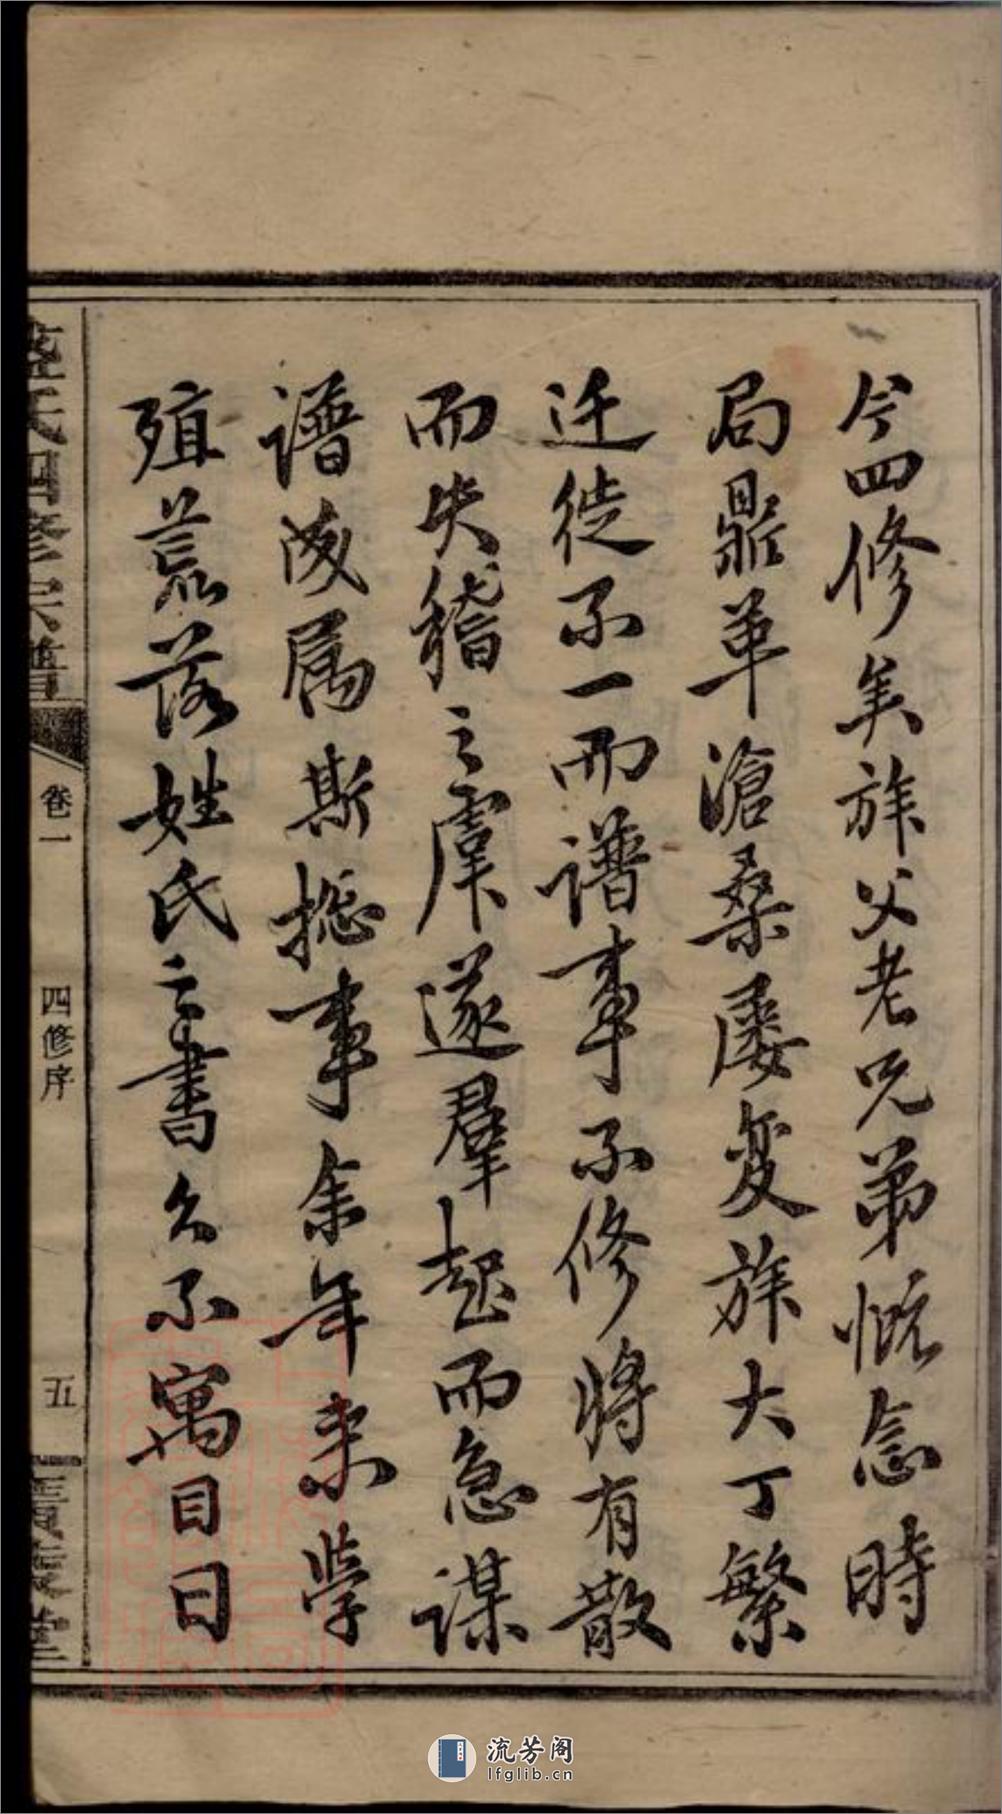 今四修矣族父老兄弟慨念時
局鼎革滄桑屡变族大丁繁
迁徙不一而谱事不修将有散
而失稽之虞遂羣起而急谋
谱成属斯捴事余年来学
殖荒落姓氏之書久不寓目曰
氏四修宗譜
卷一
四修序
五
堂
流芳阁
lfglib.cn